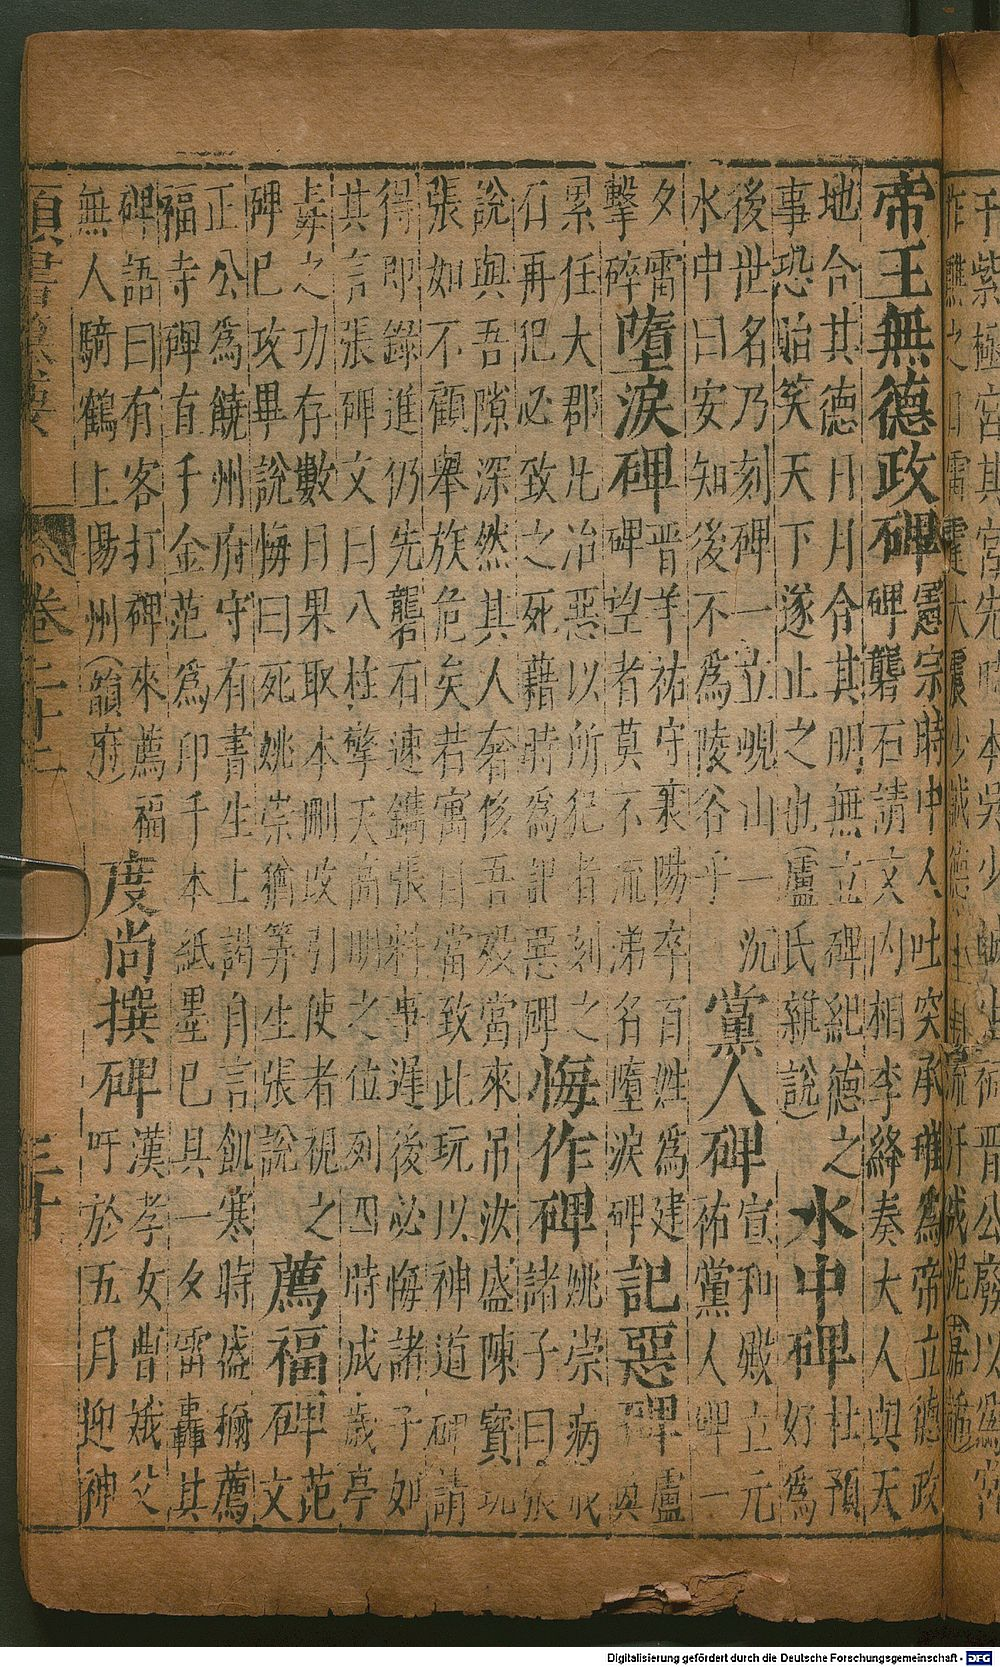 帝王無德政碑
憲宗時中人吐突承璀爲帝立德政
碑礱石請文內相李絳奏大人與天
地合其德日月合其明無立碑紀德之
事恐貽笑天下遂止之也（盧氏雜說）
水中碑
杜預
好爲
後世名乃刻碑一立峴山一沉
水中曰安知後不爲陵谷乎
黨人碑
宣和殿立元
祐黨人碑一
夕雷
擊碎
墮淚碑
晉羊祜守襄陽卒百姓爲建
碑望者莫不流涕名墮淚碑
記惡碑
盧
奐
累任大郡凡治惡以所犯者刻之
石再犯必致之死藉時爲記惡碑
悔作碑
姚崇病戒
諸子曰張
說與吾隙深然其人奢侈吾歿當來吊汝盛陳寶玩
張如不顧舉族危矣若寓目當致此玩以神道碑請
得即錄進仍先礱石速鐫張料事遲後必悔諸子如
其言張碑文曰八柱擎天高明之位列四時成歲亭
毒之功存數日果取本刪改引使者視之
碑已改畢說悔曰死姚崇猶筭生張說
薦福碑
范
文
正公爲饒州府守有書生上謁自言飢寒時盛稱薦
福寺碑直千金范爲印千本紙墨已具一夕雷轟其
碑語曰有客打碑來薦福
無人騎鶴上陽州（韻府）
度尚撰碑
漢孝女曹娥父
吁於五月迎神
卷二十二
三十
Digitalisierung gefördert durch die Deutsche Forschungsgemeinschaft - DFG